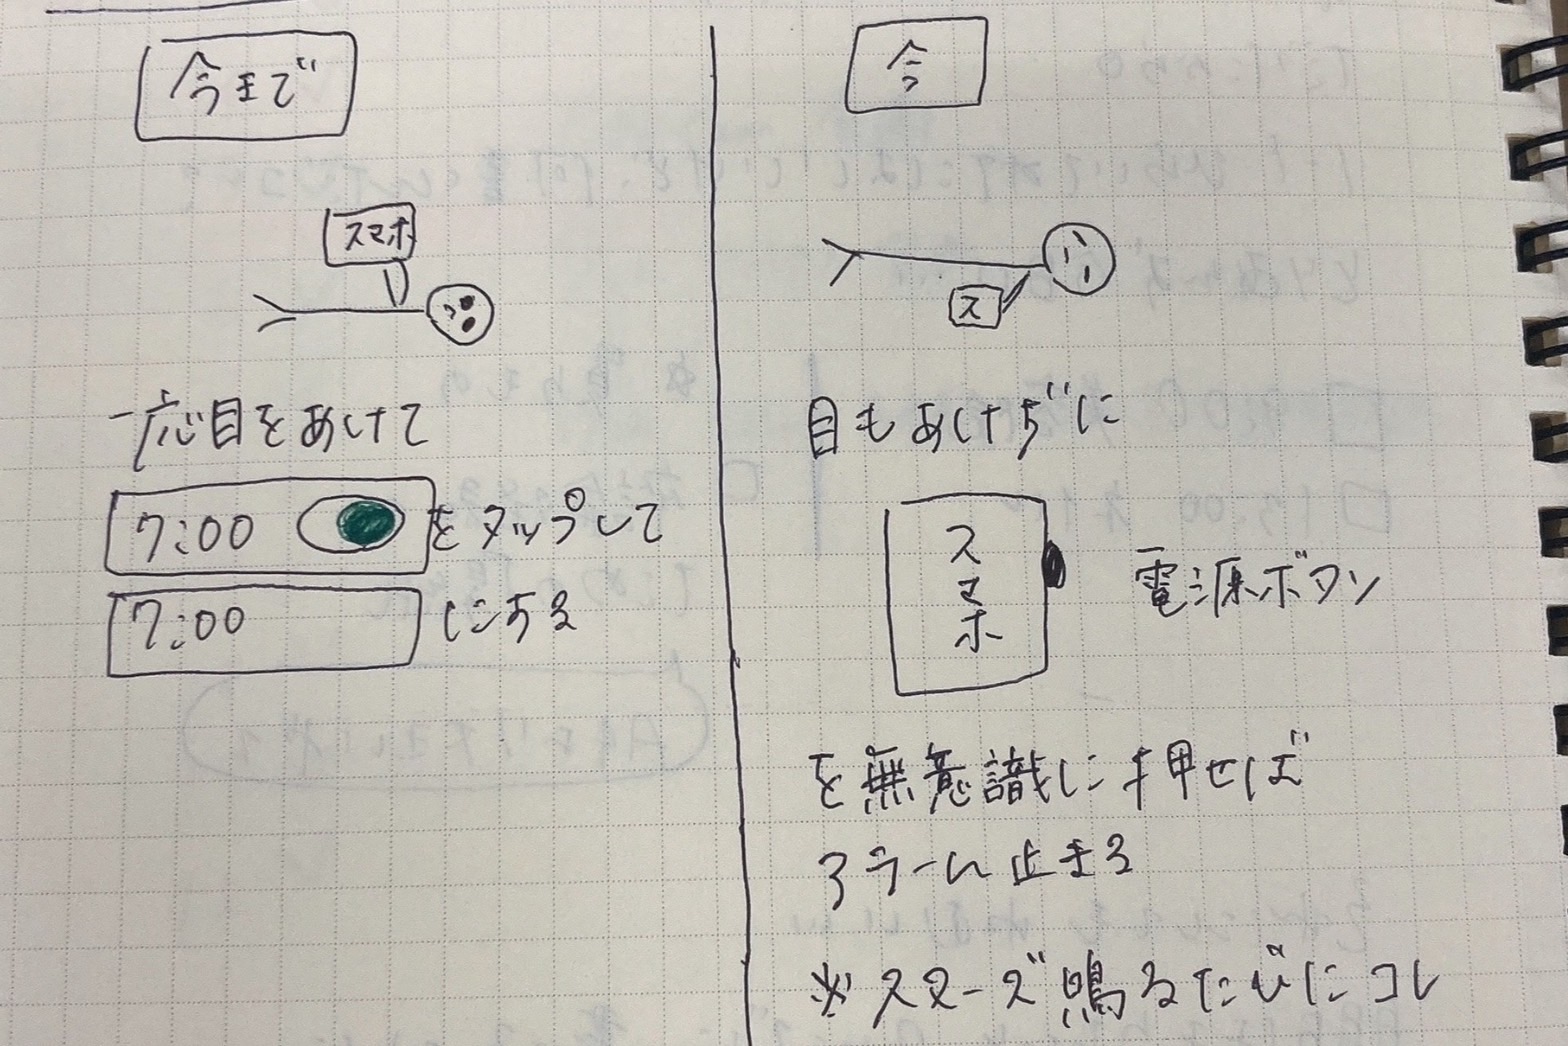 今まで
スマホ
一応目をあけて
7:00 をタップして
7:00 にする
今
ス
目もあけずに
スマホ 電源ボタン
を無意識に押せば
アラーム止まる
※スヌーズ鳴るたびにコレ